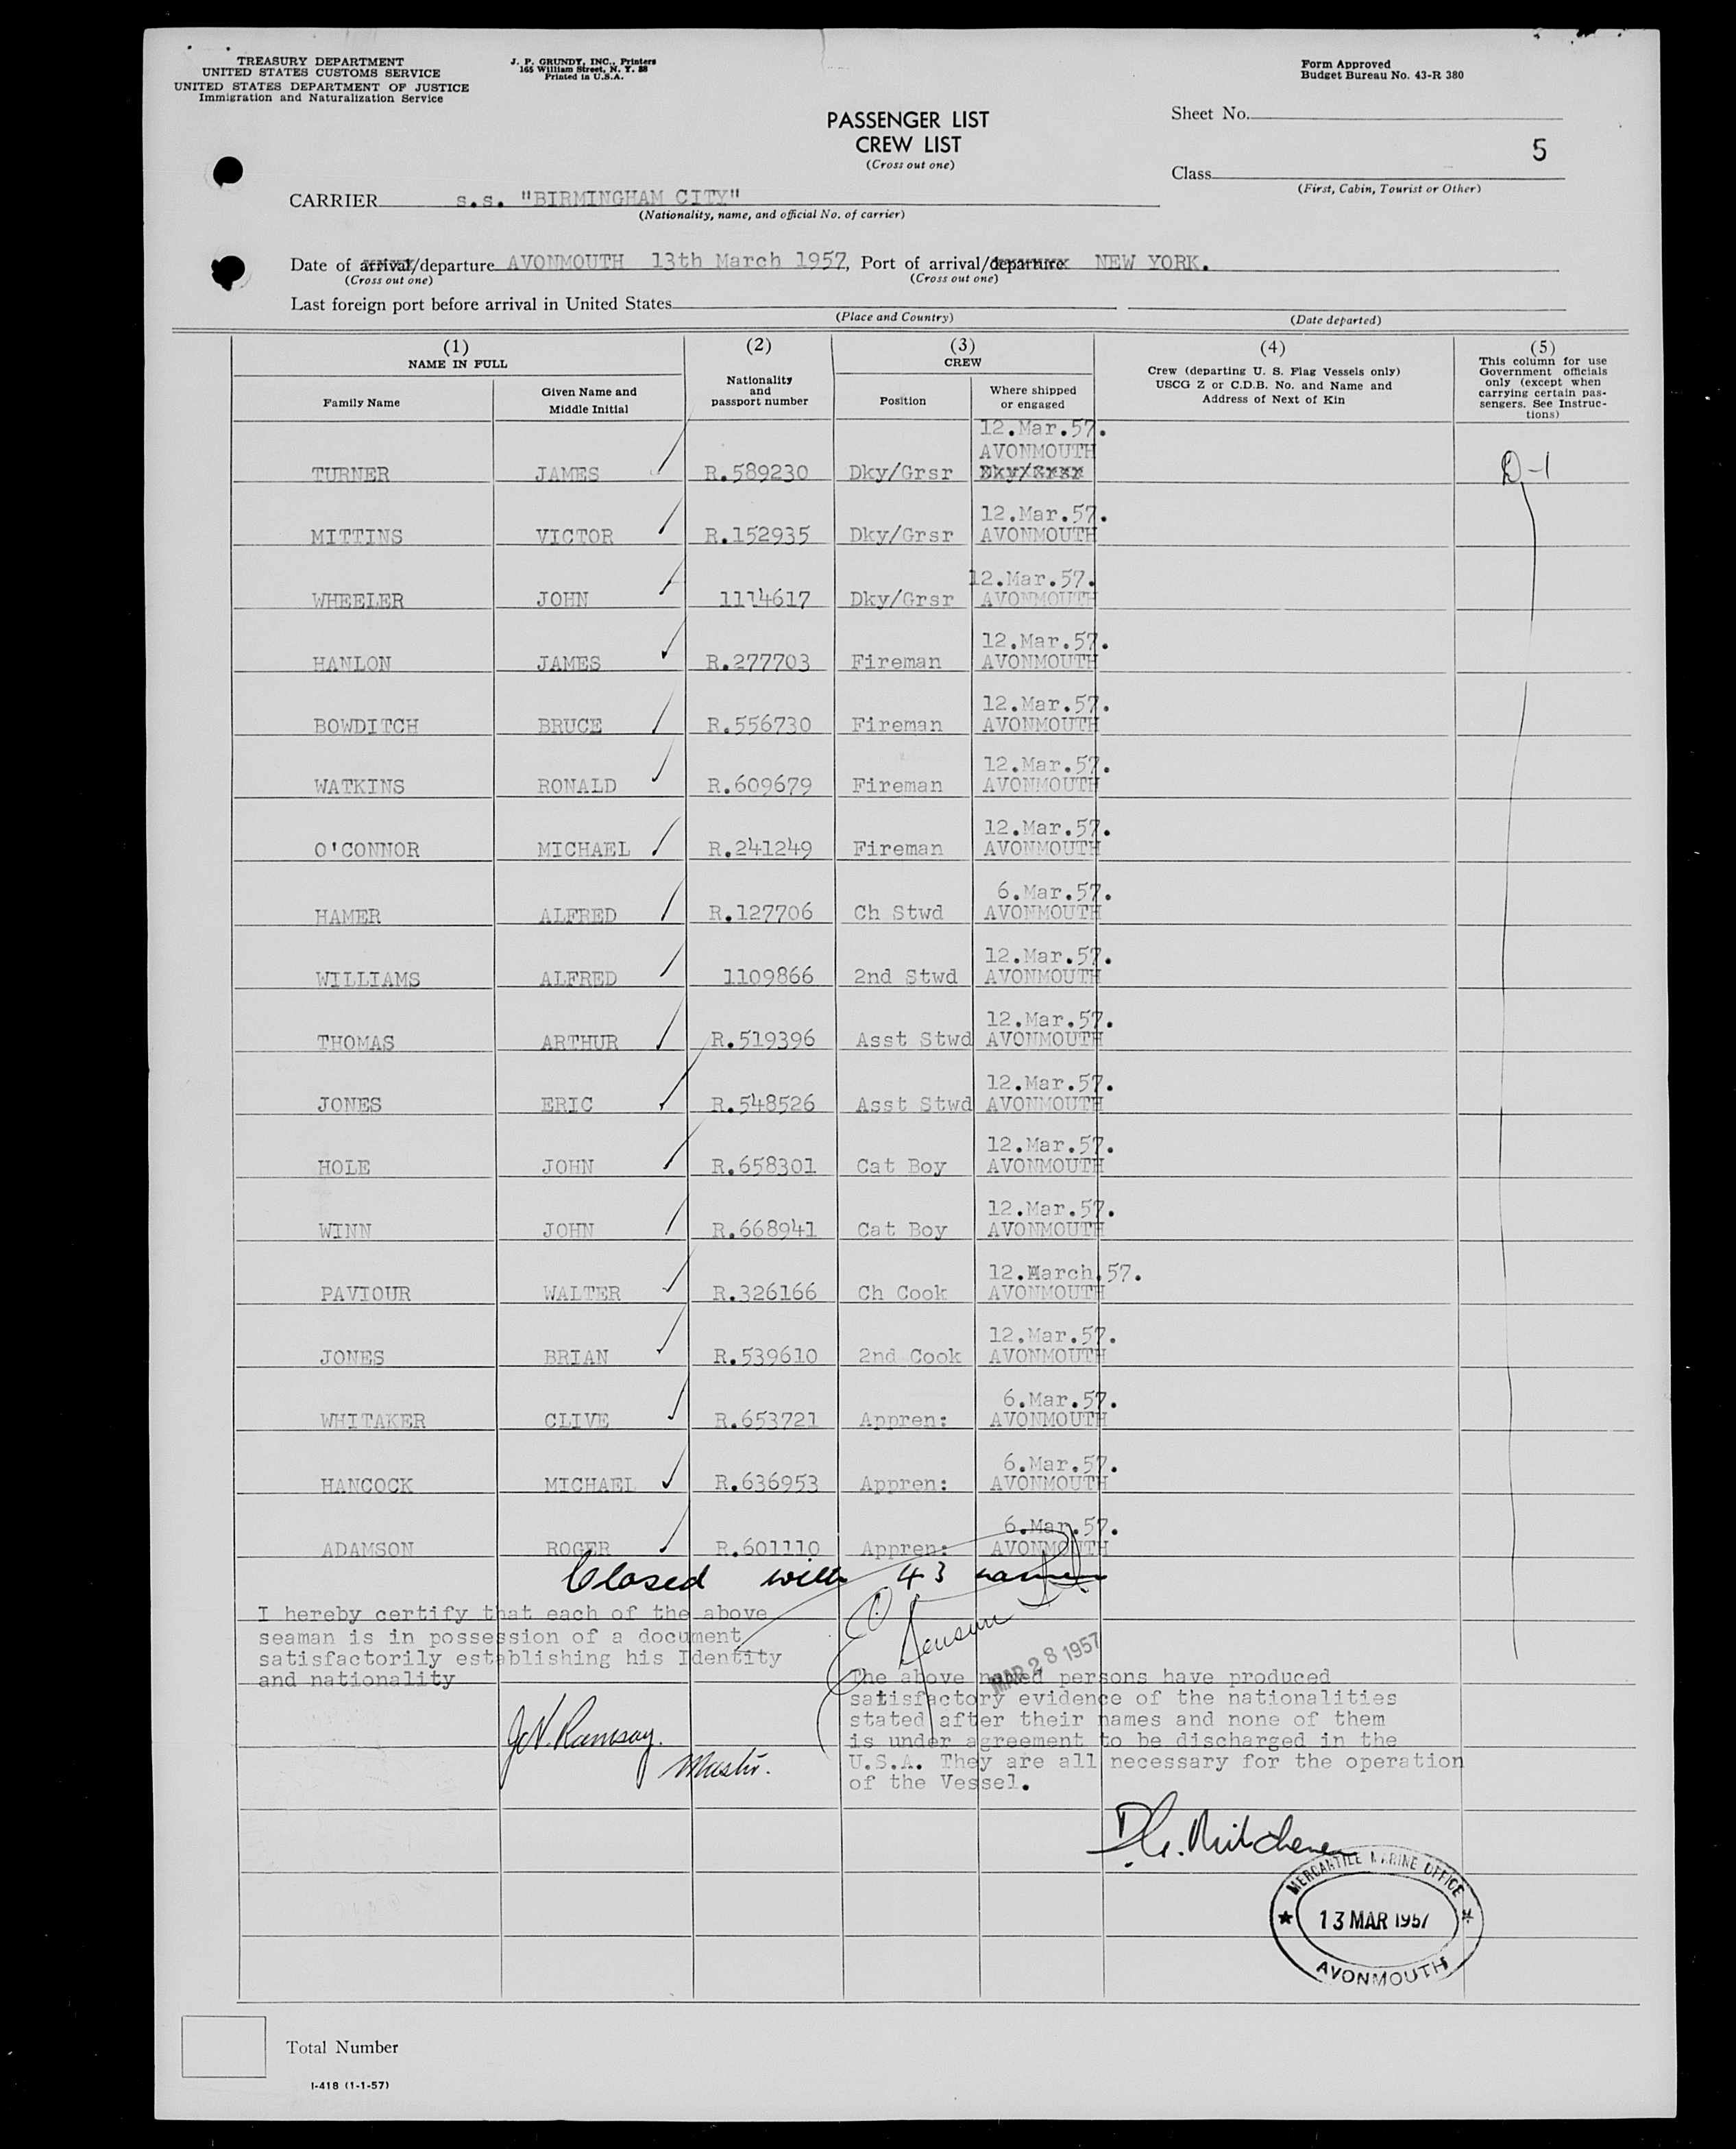 TREASURY DEPARTMENT
UNITED STATES CUSTOMS SERVICE
UNITED STATES DEPARTMENT OF JUSTICE
Immigration and Naturalization Service
J. P. GRUNDY, INC., Printers
165 William Street, N. Y. 38
Printed in U.S.A.
Form Approved
Budget Bureau No. 43-R 380
PASSENGER LIST
CREW LIST
(Cross out one)
Sheet No.
5
Class
(First, Cabin, Tourist or Other)
CARRIER s.s. "BIRMINGHAM CITY"
(Nationality, name, and official No. of carrier)
Date of arrival/departure AVONMOUTH 13th March 1957, Port of arrival/departure NEW YORK.
(Cross out one) (Cross out one)
Last foreign port before arrival in United States
(Place and Country) (Date departed)
(1) (2) (3) (4) (5)
NAME IN FULL
Family Name
Given Name and
Middle Initial
Nationality
and
passport number
CREW
Position
Where shipped
or engaged
Crew (departing U. S. Flag Vessels only)
USCG Z or C.D.B. No. and Name and
Address of Next of Kin
This column for use
Government officials
only (except when
carrying certain pas-
sengers. See Instruc-
tions)
12.Mar.57.
AVONMOUTH
TURNER JAMES R.589230 Dky/Grsr Dky/Grsr D-1
12.Mar.57.
MITTINS VICTOR R.152935 Dky/Grsr AVONMOUTH
12.Mar.57.
WHEELER JOHN 1114617 Dky/Grsr AVONMOUTH
12.Mar.57.
HANLON JAMES R.277703 Fireman AVONMOUTH
12.Mar.57.
BOWDITCH BRUCE R.556730 Fireman AVONMOUTH
12.Mar.57.
WATKINS RONALD R.609679 Fireman AVONMOUTH
12.Mar.57.
O'CONNOR MICHAEL R.241249 Fireman AVONMOUTH
6.Mar.57.
HAMER ALFRED R.127706 Ch Stwd AVONMOUTH
12.Mar.57.
WILLIAMS ALFRED 1109866 2nd Stwd AVONMOUTH
12.Mar.57.
THOMAS ARTHUR R.519396 Asst Stwd AVONMOUTH
12.Mar.57.
JONES ERIC R.548526 Asst Stwd AVONMOUTH
12.Mar.57.
HOLE JOHN R.658301 Cat Boy AVONMOUTH
12.Mar.57.
WINN JOHN R.668941 Cat Boy AVONMOUTH
12.March.57.
PAVIOUR WALTER R.326166 Ch Cook AVONMOUTH
12.Mar.57.
JONES BRIAN R.539610 2nd Cook AVONMOUTH
6.Mar.57.
WHITAKER CLIVE R.653721 Appren: AVONMOUTH
6.Mar.57.
HANCOCK MICHAEL R.636953 Appren: AVONMOUTH
6.Mar.57.
ADAMSON ROGER R.601110 Appren: AVONMOUTH
Closed with 43 names
I hereby certify that each of the above
seaman is in possession of a document
satisfactorily establishing his Identity
and nationality
MAR 28 1957
The above named persons have produced
satisfactory evidence of the nationalities
stated after their names and none of them
is under agreement to be discharged in the
U.S.A. They are all necessary for the operation
of the Vessel.
Ramsay.
Master.
MERCANTILE MARINE OFFICE
13 MAR 1957
AVONMOUTH
Total Number
I-418 (1-1-57)